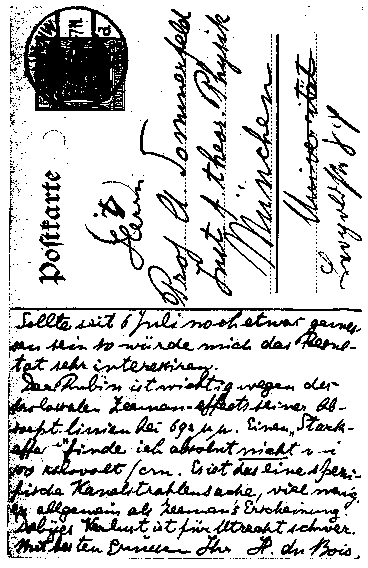 Postkarte
Herrn
Prof A Sommerfeld
Inst f theor. Physik
München
Universität
Sollte seit 6 Juli noch etwas gemes-
sen sein so würde mich das Resul-
tat sehr interessiren.
Der Rubin ist wichtig wegen des
kolossalen Zeeman-effects seiner Ab-
sorpt. linien bei 692 μμ. Einen „Stark-
effe “ finde ich absolut nicht mi
100 kilovolt/cm. Es ist das eine spezi-
fische Kanalstrahlensache, viel wenig
er allgemein als Zeeman's Erscheinung
Debijes Verlust ist für Utrecht schwer.
Mit besten Grüssen Ihr H. du Bois.